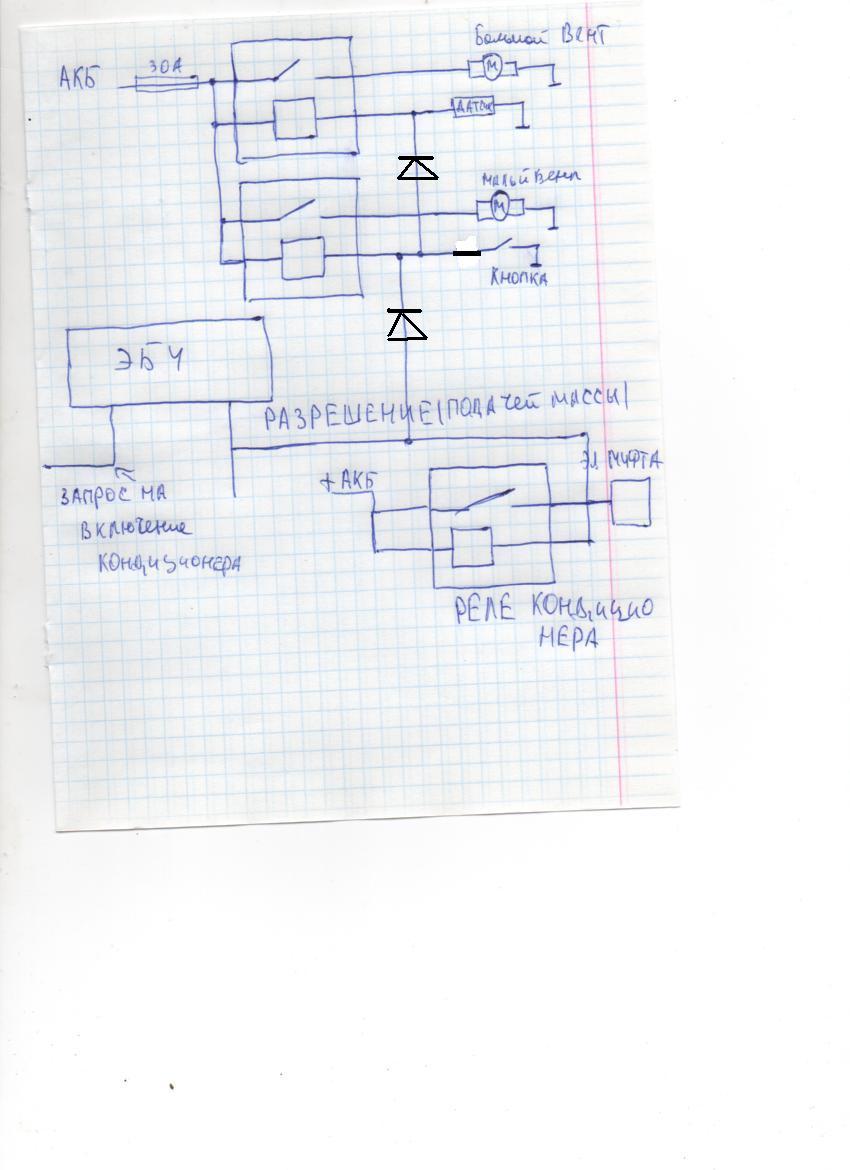 Большой Вент
АКБ
30А
М
ДАТЧИК
малый Вент
М
КНОПКА
ЭБУ
РАЗРЕШЕНИЕ(ПОДАЧЕЙ МАССЫ)
ЗАПРОС НА
ВКЛЮЧЕНИЕ
КОНДИЦИОНЕРА
+АКБ
ЭЛ МУФТА
РЕЛЕ КОНДИЦИО
НЕРА